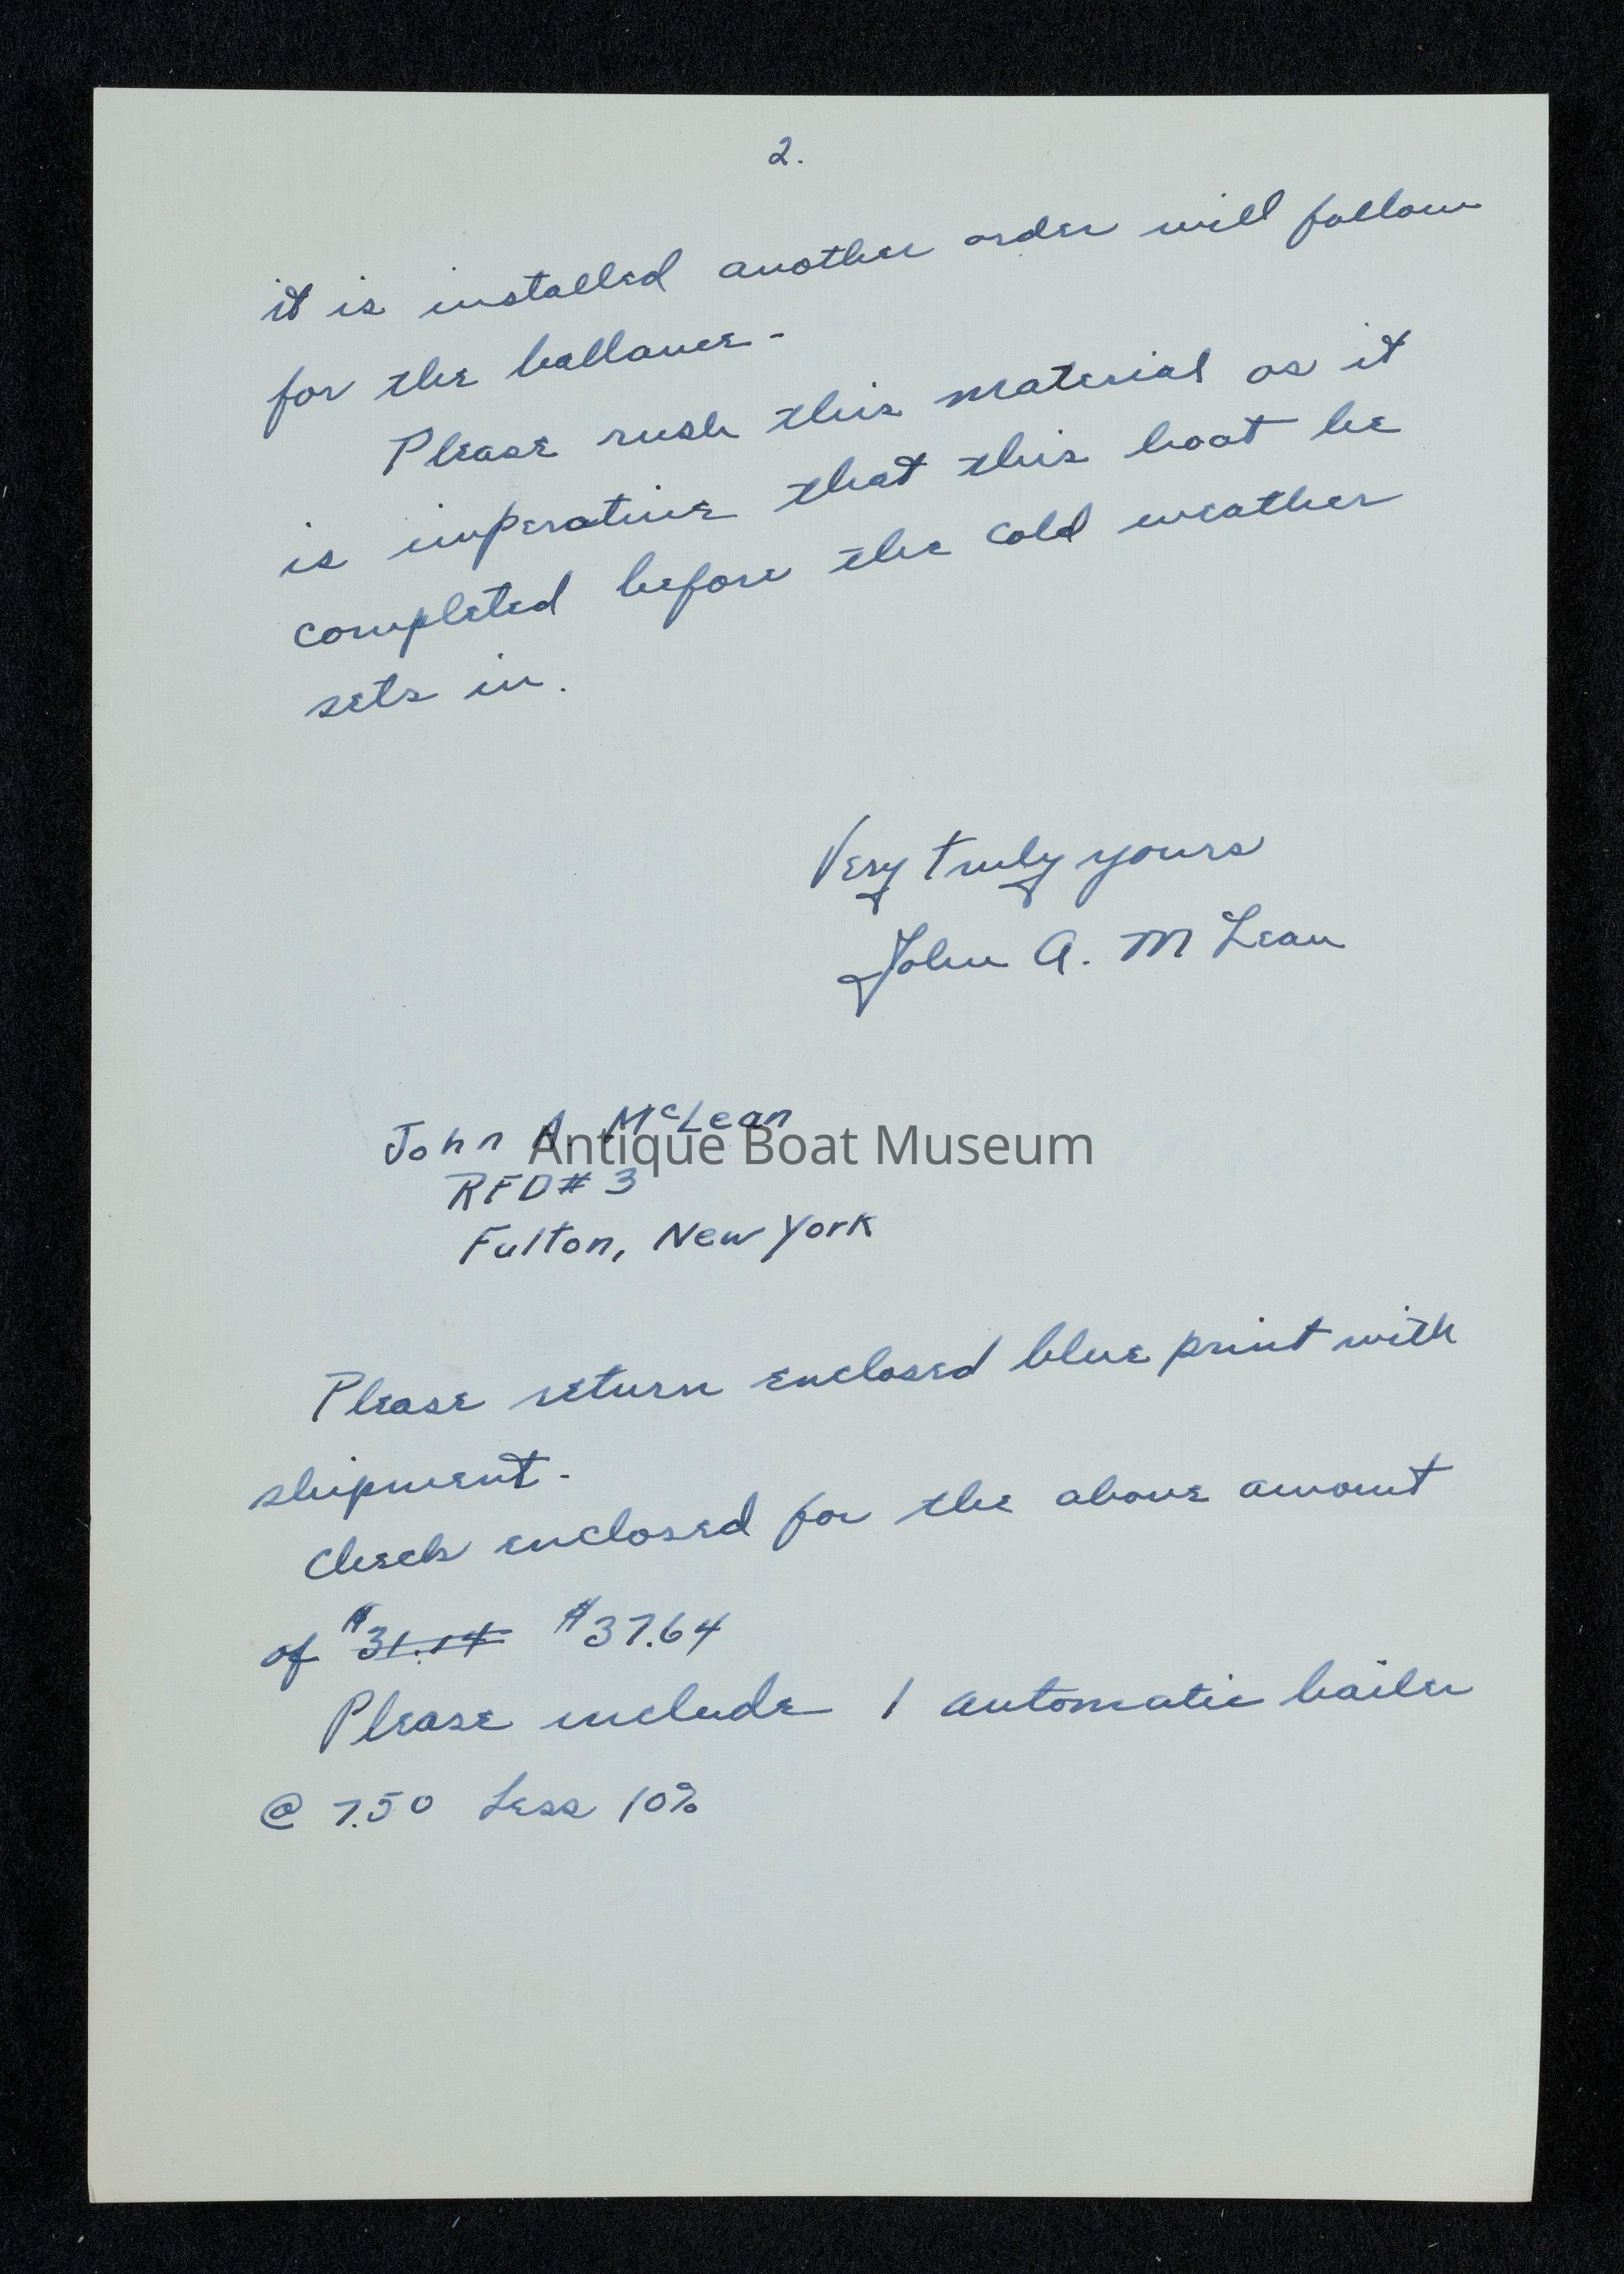 2.
it is installed another order will follow
for the ballance -
Please rush this material as it
is imperative that this boat be
completed before the cold weather
sets in.
Very truly yours
John A. M Lean
John A. McLean
Antique Boat Museum
RFD# 3
Fulton, New York
Please return enclosed blue print with
shipment -
Check enclosed for the above amount
of $31.14 $37.64
Please include 1 automatic bailer
@ 7.50 Less 10%